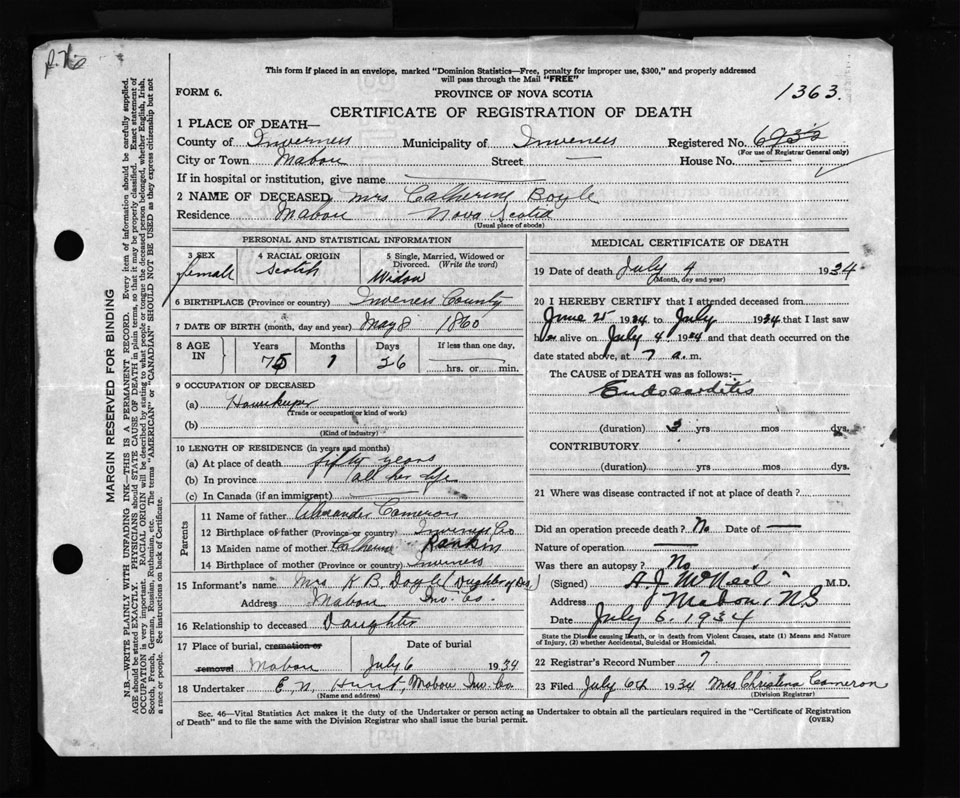 This form if placed in an envelope, marked "Dominion Statistics—Free, penalty for improper use, $300," and properly addressed
will pass through the Mail "FREE"
FORM 6.
PROVINCE OF NOVA SCOTIA
1363.
CERTIFICATE OF REGISTRATION OF DEATH
1 PLACE OF DEATH—
County of Inverness Municipality of Inverness Registered No.
(For use of Registrar General only)
City or Town Mabou Street — House No. —
If in hospital or institution, give name
2 NAME OF DECEASED Mrs Catherine Boyle
Residence Mabou Nova Scotia
(Usual place of abode)
PERSONAL AND STATISTICAL INFORMATION
3 SEX
female
4 RACIAL ORIGIN
Scotch
5 Single, Married, Widowed or
Divorced. (Write the word)
Widow
6 BIRTHPLACE (Province or country) Inverness County
7 DATE OF BIRTH (month, day and year) May 8 1860
8 AGE IN
Years Months Days If less than one day,
75 1 26 hrs. or min.
9 OCCUPATION OF DECEASED
(a) Housekeeper
(Trade or occupation or kind of work)
(b)
(Kind of industry)
10 LENGTH OF RESIDENCE (in years and months)
(a) At place of death fifty years
(b) In province all her life
(c) In Canada (if an immigrant)
Parents
11 Name of father Alexander Cameron
12 Birthplace of father (Province or country) Inverness Co
13 Maiden name of mother Catherine Rankin
14 Birthplace of mother (Province or country) Inverness
15 Informant's name Mrs K B Doyle (Daughter of De.)
Address Mabou Inv. Co.
16 Relationship to deceased Daughter
17 Place of burial, cremation or
removal Mabou
Date of burial
July 6 1934
18 Undertaker E. N. Hunt, Mabou Inv. Co
(Name and address)
MEDICAL CERTIFICATE OF DEATH
19 Date of death July 4 1934
(Month, day and year)
20 I HEREBY CERTIFY that I attended deceased from
June 25 1934 to July 1934 that I last saw
her alive on July 4 1934 and that death occurred on the
date stated above, at 7 a.m.
The CAUSE of DEATH was as follows:—
Endocarditis
(duration) 3 yrs mos dys.
CONTRIBUTORY
(duration) yrs. mos. dys.
21 Where was disease contracted if not at place of death?
Did an operation precede death? No Date of —
Nature of operation —
Was there an autopsy? No
(Signed) A. J. McNeil M.D.
Address Mabou, N.S
Date July 6. 1934
State the Disease causing Death, or in death from Violent Causes, state (1) Means and Nature
of Injury, (2) whether Accidental, Suicidal or Homicidal. (See over.)
22 Registrar's Record Number 7.
23 Filed July 6th 1934 Mrs Christina Cameron
(Division Registrar)
Sec. 46—Vital Statistics Act makes it the duty of the Undertaker or person acting as Undertaker to obtain all the particulars required in the "Certificate of Registration
of Death" and to file the same with the Division Registrar who shall issue the burial permit.
(OVER)
MARGIN RESERVED FOR BINDING
N.B.—WRITE PLAINLY WITH UNFADING INK—THIS IS A PERMANENT RECORD. Every item of information should be carefully supplied.
AGE should be stated EXACTLY. PHYSICIANS should STATE CAUSE OF DEATH in plain terms, so that it may be properly classified. Exact statement of
OCCUPATION is very important. RACIAL ORIGIN will be described by stating to what people or tongue the deceased person belonged, whether English, Irish,
Scotch, French, German, Russian, Ruthenian, etc. The terms "AMERICAN" or "CANADIAN" SHOULD NOT BE USED as they express citizenship but not
a race or people. See instructions on back of Certificate.